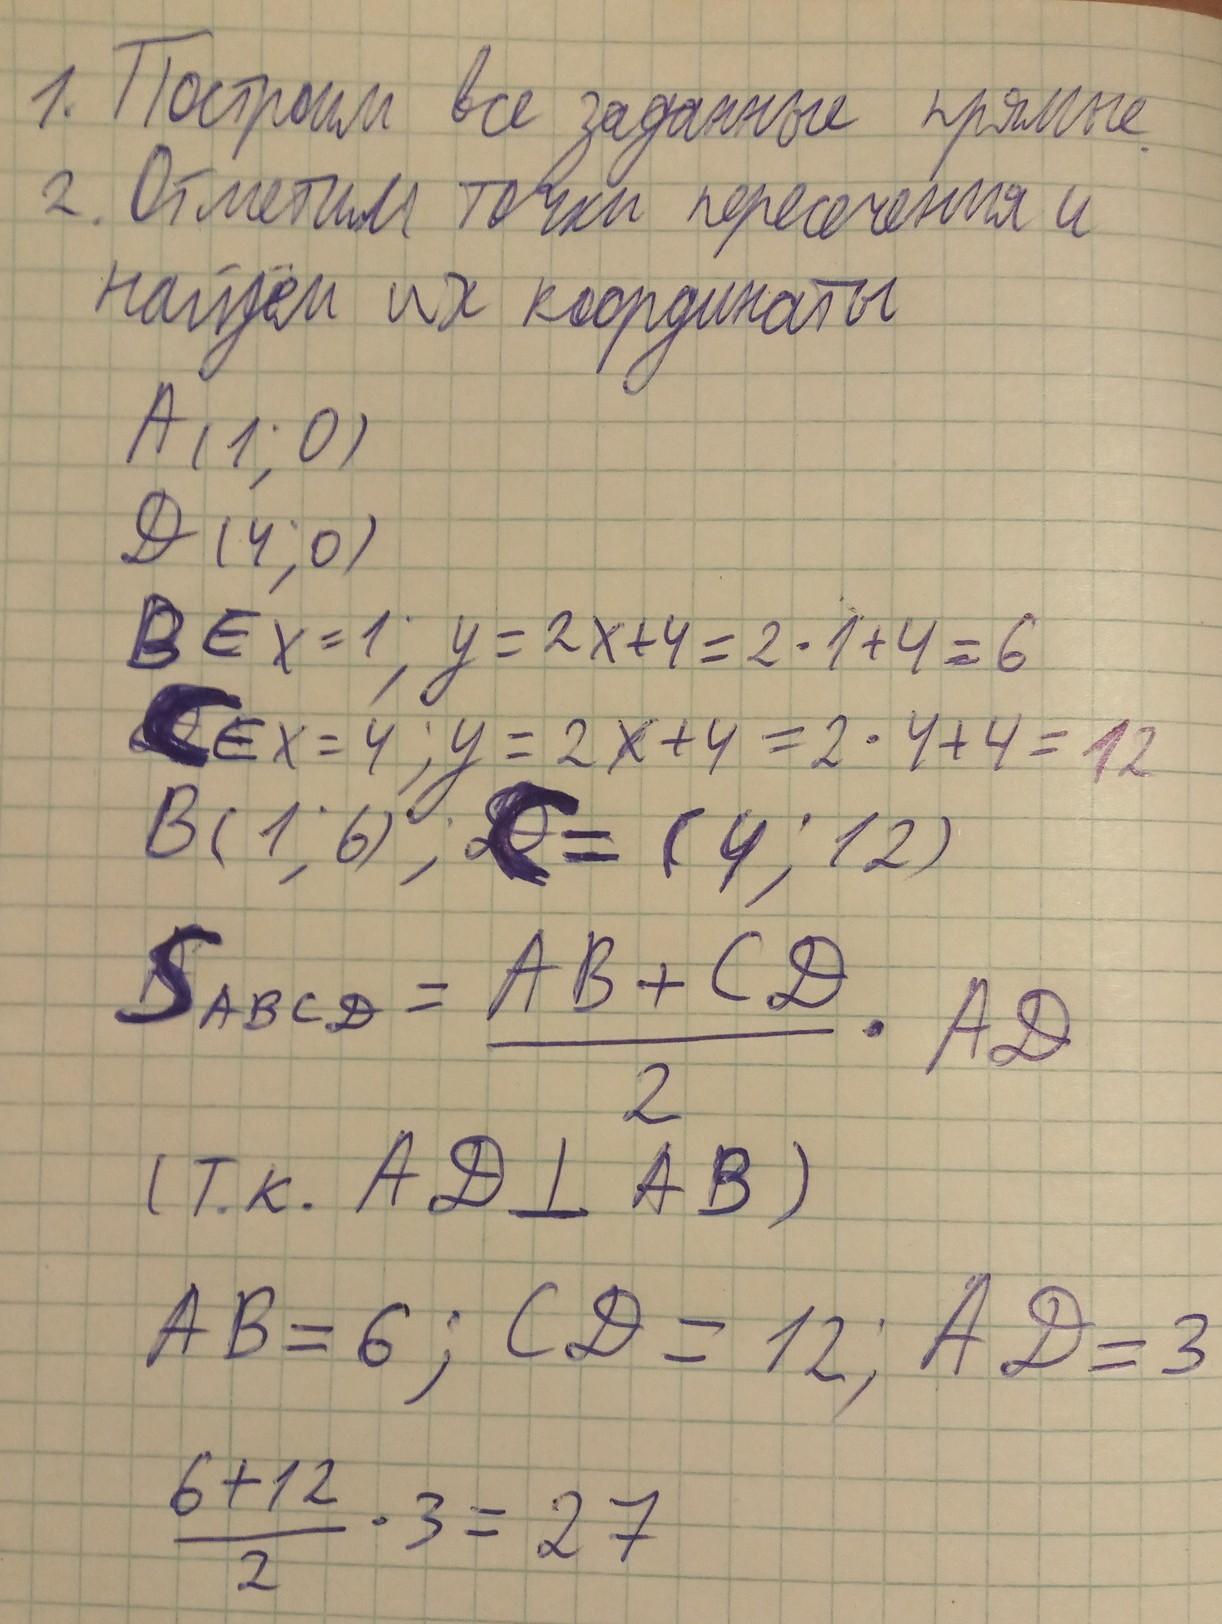 1. Построим все заданные прямые.
2. Отметим точки пересечения и
найдём их координаты
A(1;0)
D(4;0)
B∈x=1; y=2x+4=2·1+4=6
C∈x=4; y=2x+4=2·4+4=12
B(1;6); C=(4;12)
S_ABCD = (AB+CD)/2 · AD
(т.к. AD⊥AB)
AB=6; CD=12; AD=3
(6+12)/2 · 3=27